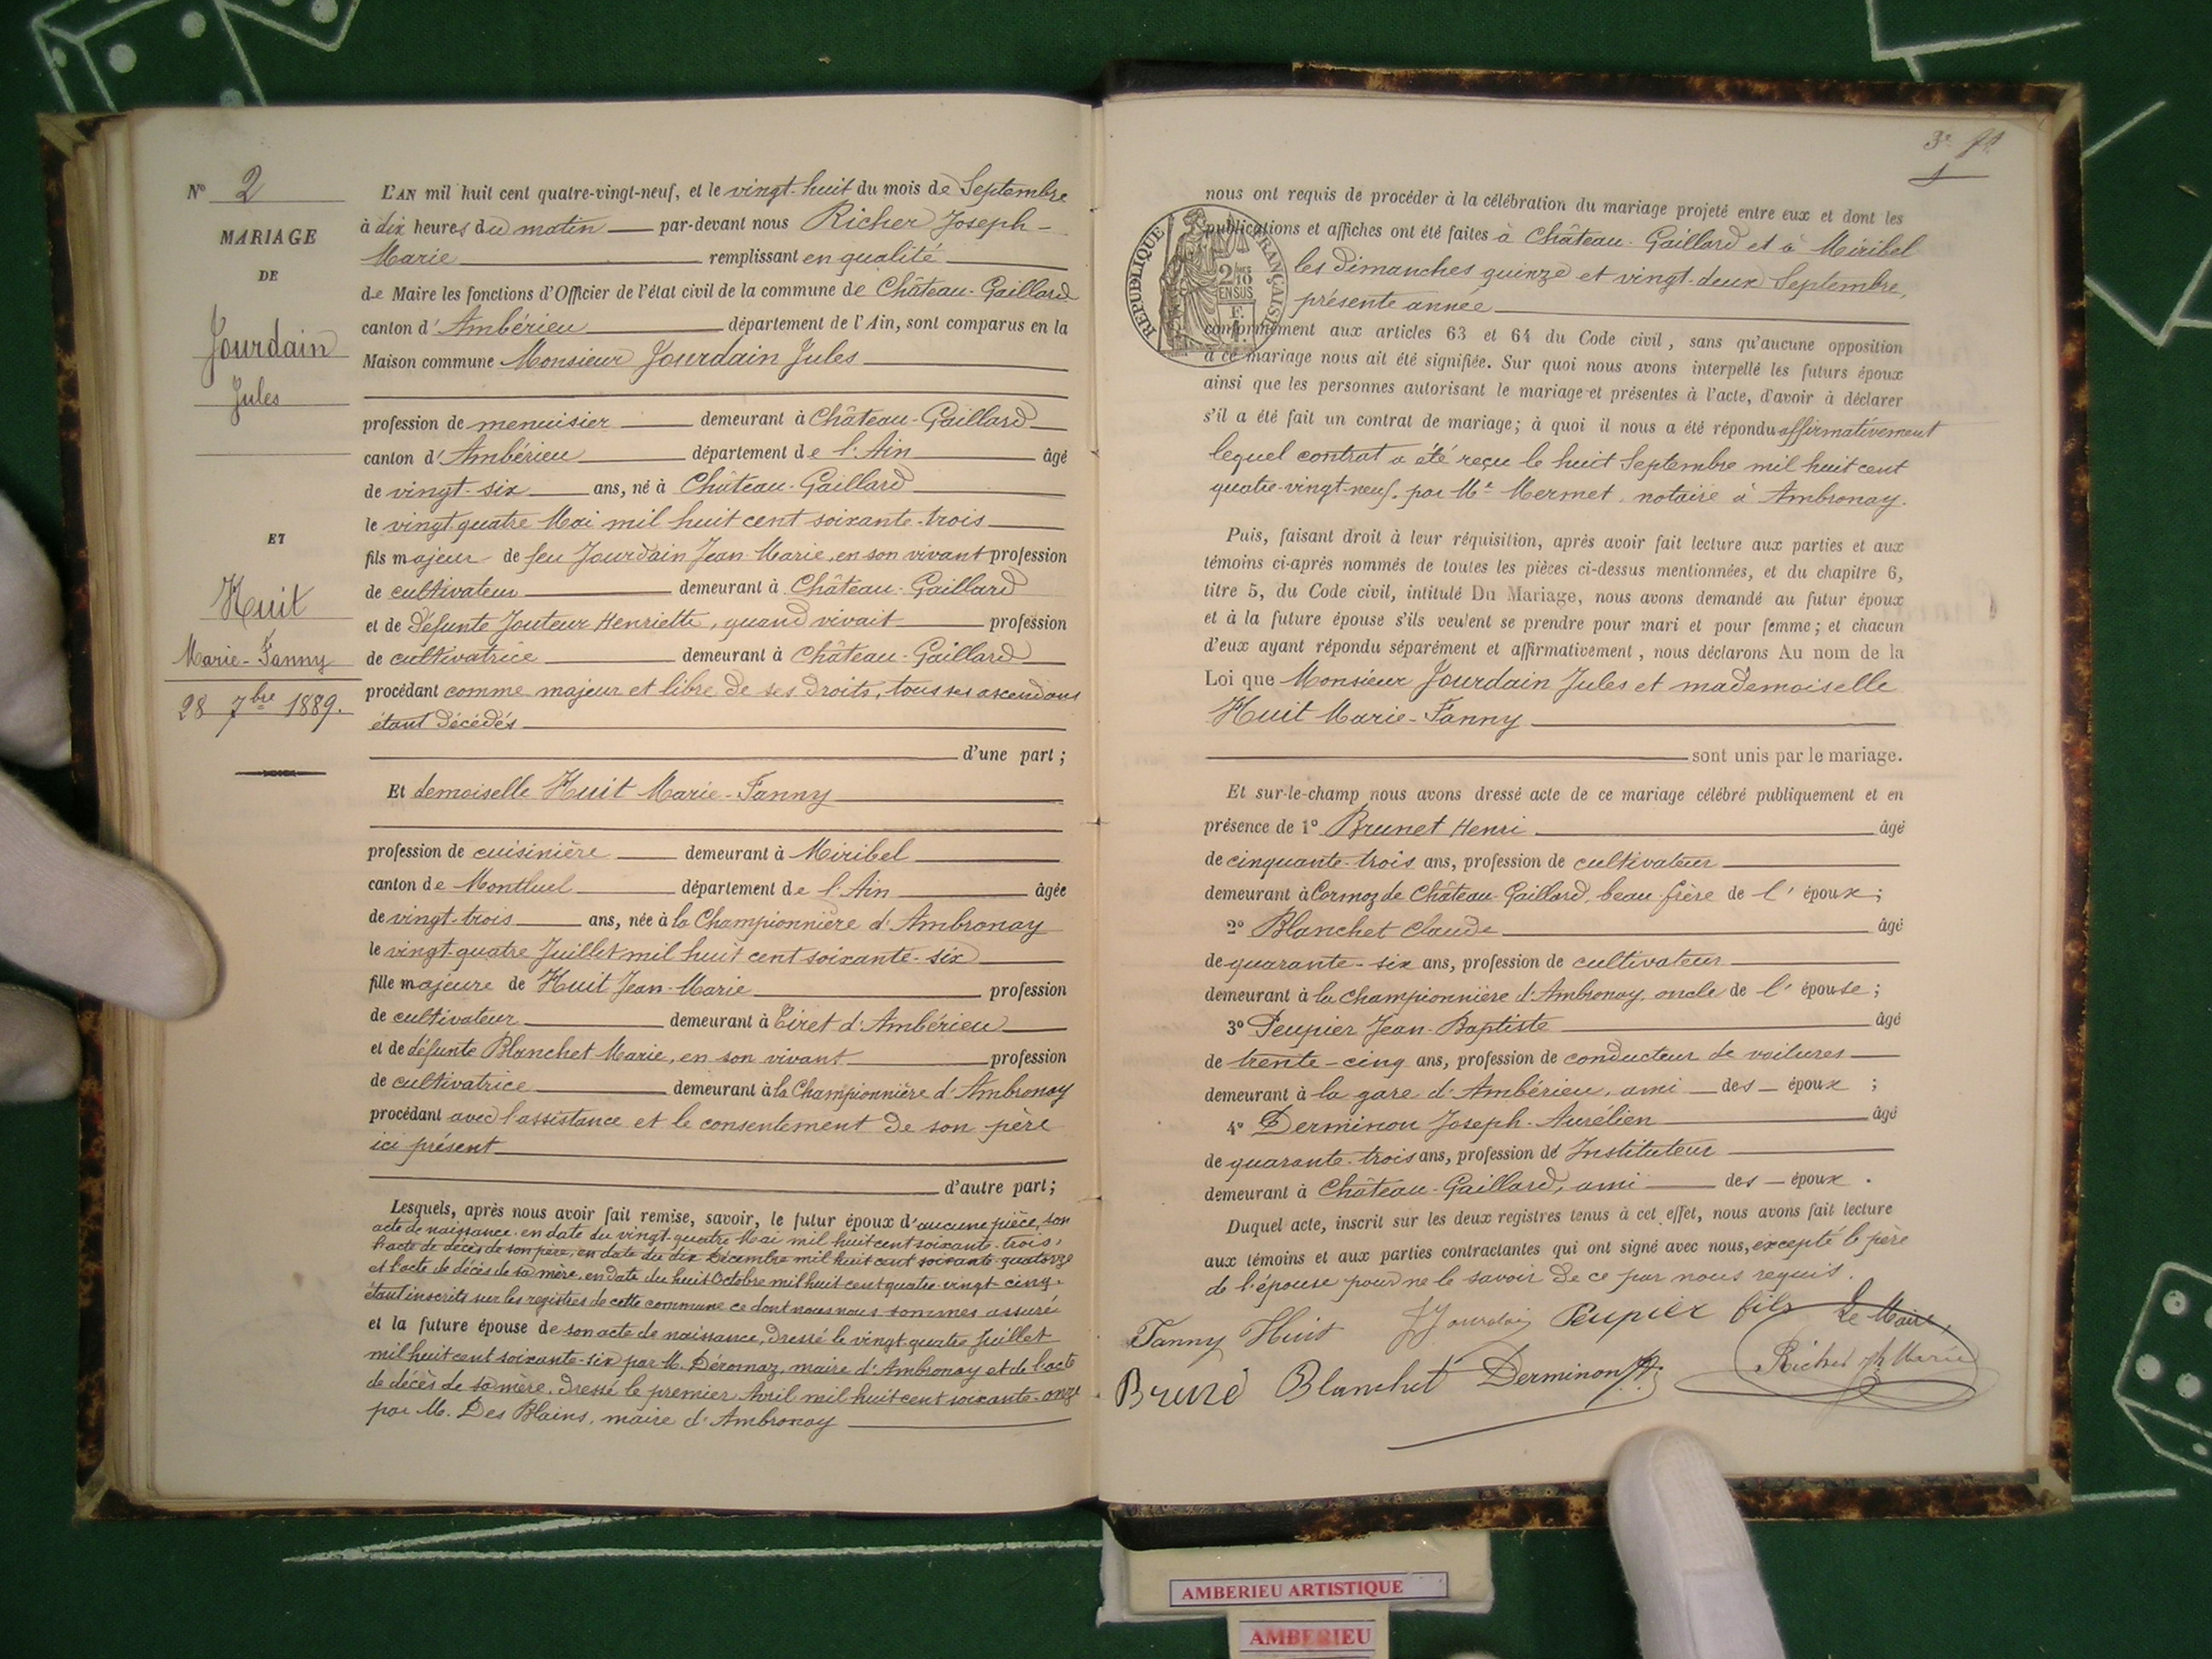 N° 2
MARIAGE
DE
Jourdain
Jules
ET
Huit
Marie-Fanny
28 7bre 1889.
L'AN mil huit cent quatre-vingt-neuf, et le vingt-huit du mois de Septembre
à dix heures du matin par-devant nous Richer Joseph-
Marie remplissant en qualité
de Maire les fonctions d'Officier de l'état civil de la commune de Château-Gaillard
canton d'Ambérieu département de l'Ain, sont comparus en la
Maison commune Monsieur Jourdain Jules
profession de menuisier demeurant à Château-Gaillard
canton d'Ambérieu département de l'Ain âgé
de vingt-six ans, né à Château-Gaillard
le vingt-quatre Mai mil huit cent soixante-trois
fils majeur de feu Jourdain Jean-Marie, en son vivant profession
de cultivateur demeurant à Château-Gaillard
et de défunte Jouteur Henriette, quand vivait profession
de cultivatrice demeurant à Château-Gaillard
procédant comme majeur et libre de ses droits, tous ses ascendans
étant décédés
d'une part ;
Et demoiselle Huit Marie-Fanny
profession de cuisinière demeurant à Miribel
canton de Montluel département de l'Ain âgée
de vingt-trois ans, née à la Championnière d'Ambronay
le vingt-quatre Juillet mil huit cent soixante-six
fille majeure de Huit Jean-Marie profession
de cultivateur demeurant à Tiret d'Ambérieu
et de défunte Blanchet Marie, en son vivant profession
de cultivatrice demeurant à la Championnière d'Ambronay
procédant avec l'assistance et le consentement de son père
ici présent
d'autre part;
Lesquels, après nous avoir fait remise, savoir, le futur époux d'aucune pièce, son
acte de naissance en date du vingt-quatre Mai mil huit cent soixante-trois,
l'acte de décès de son père, en date du dix Décembre mil huit cent soixante-quatorze
et l'acte de décès de sa mère, en date du huit Octobre mil huit cent quatre-vingt-cinq.
étant inscrits sur les registres de cette commune ce dont nous nous sommes assuré
et la future épouse de son acte de naissance, dressé le vingt-quatre Juillet
mil huit cent soixante-six par M. Déromaz, maire d'Ambronay et de l'acte
de décès de sa mère, dressé le premier Avril mil huit cent soixante-onze
par M. Des Blains, maire d'Ambronay
3e
nous ont requis de procéder à la célébration du mariage projeté entre eux et dont les
publications et affiches ont été faites à Château-Gaillard et à Miribel
les dimanches quinze et vingt-deux Septembre,
présente année
RÉPUBLIQUE FRANÇAISE
2/10
EN SUS
conformément aux articles 63 et 64 du Code civil, sans qu'aucune opposition
à ce mariage nous ait été signifiée. Sur quoi nous avons interpellé les futurs époux
ainsi que les personnes autorisant le mariage et présentes à l'acte, d'avoir à déclarer
s'il a été fait un contrat de mariage; à quoi il nous a été répondu affirmativement
lequel contrat a été reçu le huit Septembre mil huit cent
quatre-vingt-neuf, par Me Mermet, notaire à Ambronay.
Puis, faisant droit à leur réquisition, après avoir fait lecture aux parties et aux
témoins ci-après nommés de toutes les pièces ci-dessus mentionnées, et du chapitre 6,
titre 5, du Code civil, intitulé Du Mariage, nous avons demandé au futur époux
et à la future épouse s'ils veulent se prendre pour mari et pour femme ; et chacun
d'eux ayant répondu séparément et affirmativement, nous déclarons Au nom de la
Loi que Monsieur Jourdain Jules et mademoiselle
Huit Marie-Fanny
sont unis par le mariage.
Et sur-le-champ nous avons dressé acte de ce mariage célébré publiquement et en
présence de 1° Brunet Henri âgé
de cinquante-trois ans, profession de cultivateur
demeurant à Cormoz de Château-Gaillard, beau-frère de l'époux ;
2° Blanchet Claude âgé
de quarante-six ans, profession de cultivateur
demeurant à la Championnière d'Ambronay, oncle de l'épouse ;
3° Peupier Jean-Baptiste âgé
de trente-cinq ans, profession de conducteur de voitures
demeurant à la gare d'Ambérieu, ami des époux ;
4° Derminon Joseph-Aurélien âgé
de quarante-trois ans, profession de Instituteur
demeurant à Château-Gaillard, ami des époux.
Duquel acte, inscrit sur les deux registres tenus à cet effet, nous avons fait lecture
aux témoins et aux parties contractantes qui ont signé avec nous, excepté le père
de l'épouse pour ne le savoir de ce par nous requis.
Fanny Huit Jourdain Peupier fils Le Maire,
Bruné Blanchet Derminon Richer Jh Marie
AMBERIEU ARTISTIQUE
AMBERIEU